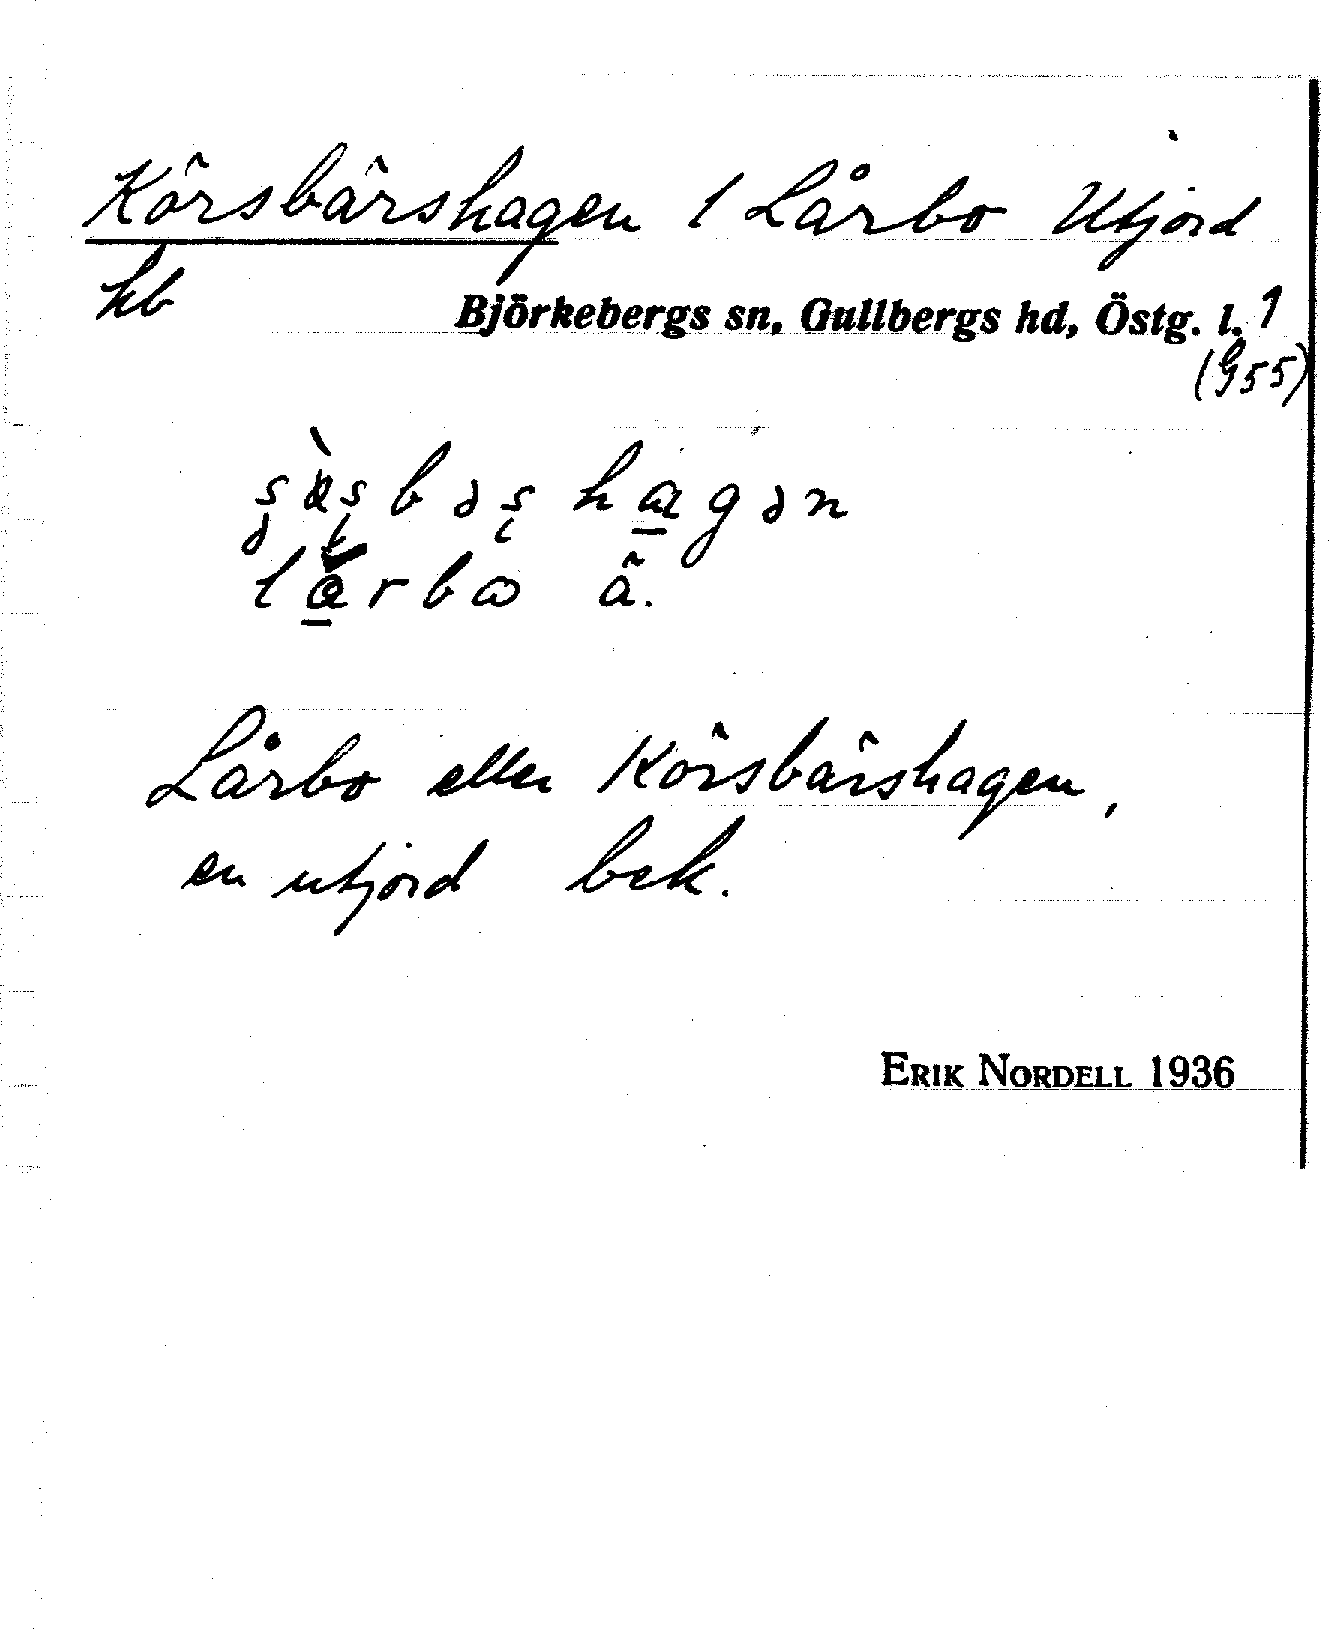 Körsbärshagen / Lårbo Utjord
hb
Björkebergs sn, Gullbergs hd, Östg. l. 1
(G55)
hagən
lårbω â.
Lårbo eller Körsbärshagen,
en utjord bek.
ERIK NORDELL 1936